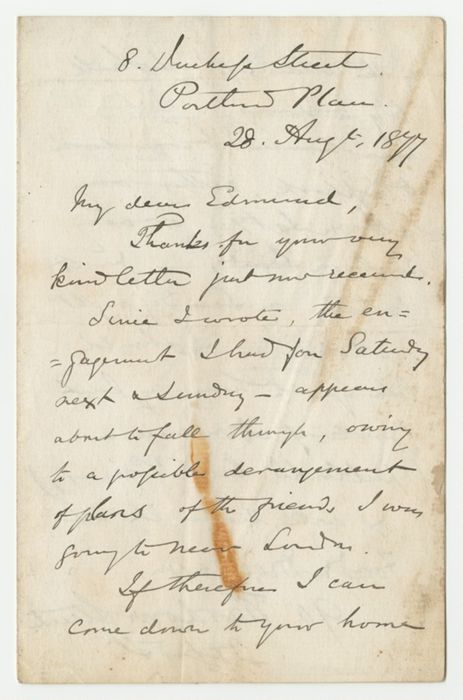 8. Duchess Street.
Portland Place.
28. Augt, 1877
My dear Edmund,
Thanks for your very
kind letter just now received.
Since I wrote, the en=
=gagement I had for Saturday
next & Sunday – appears
about to fall through, owing
to a possible derangement
of plans of the friends I was
going to near London.
If therefore I can
come down to your home